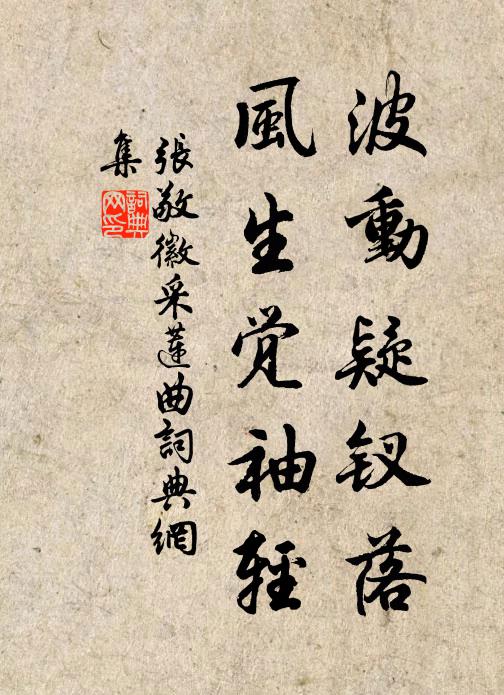 波動疑钗落
風生觉袖輕
張敬徽采蓮曲詞典網
集
詞典
网印